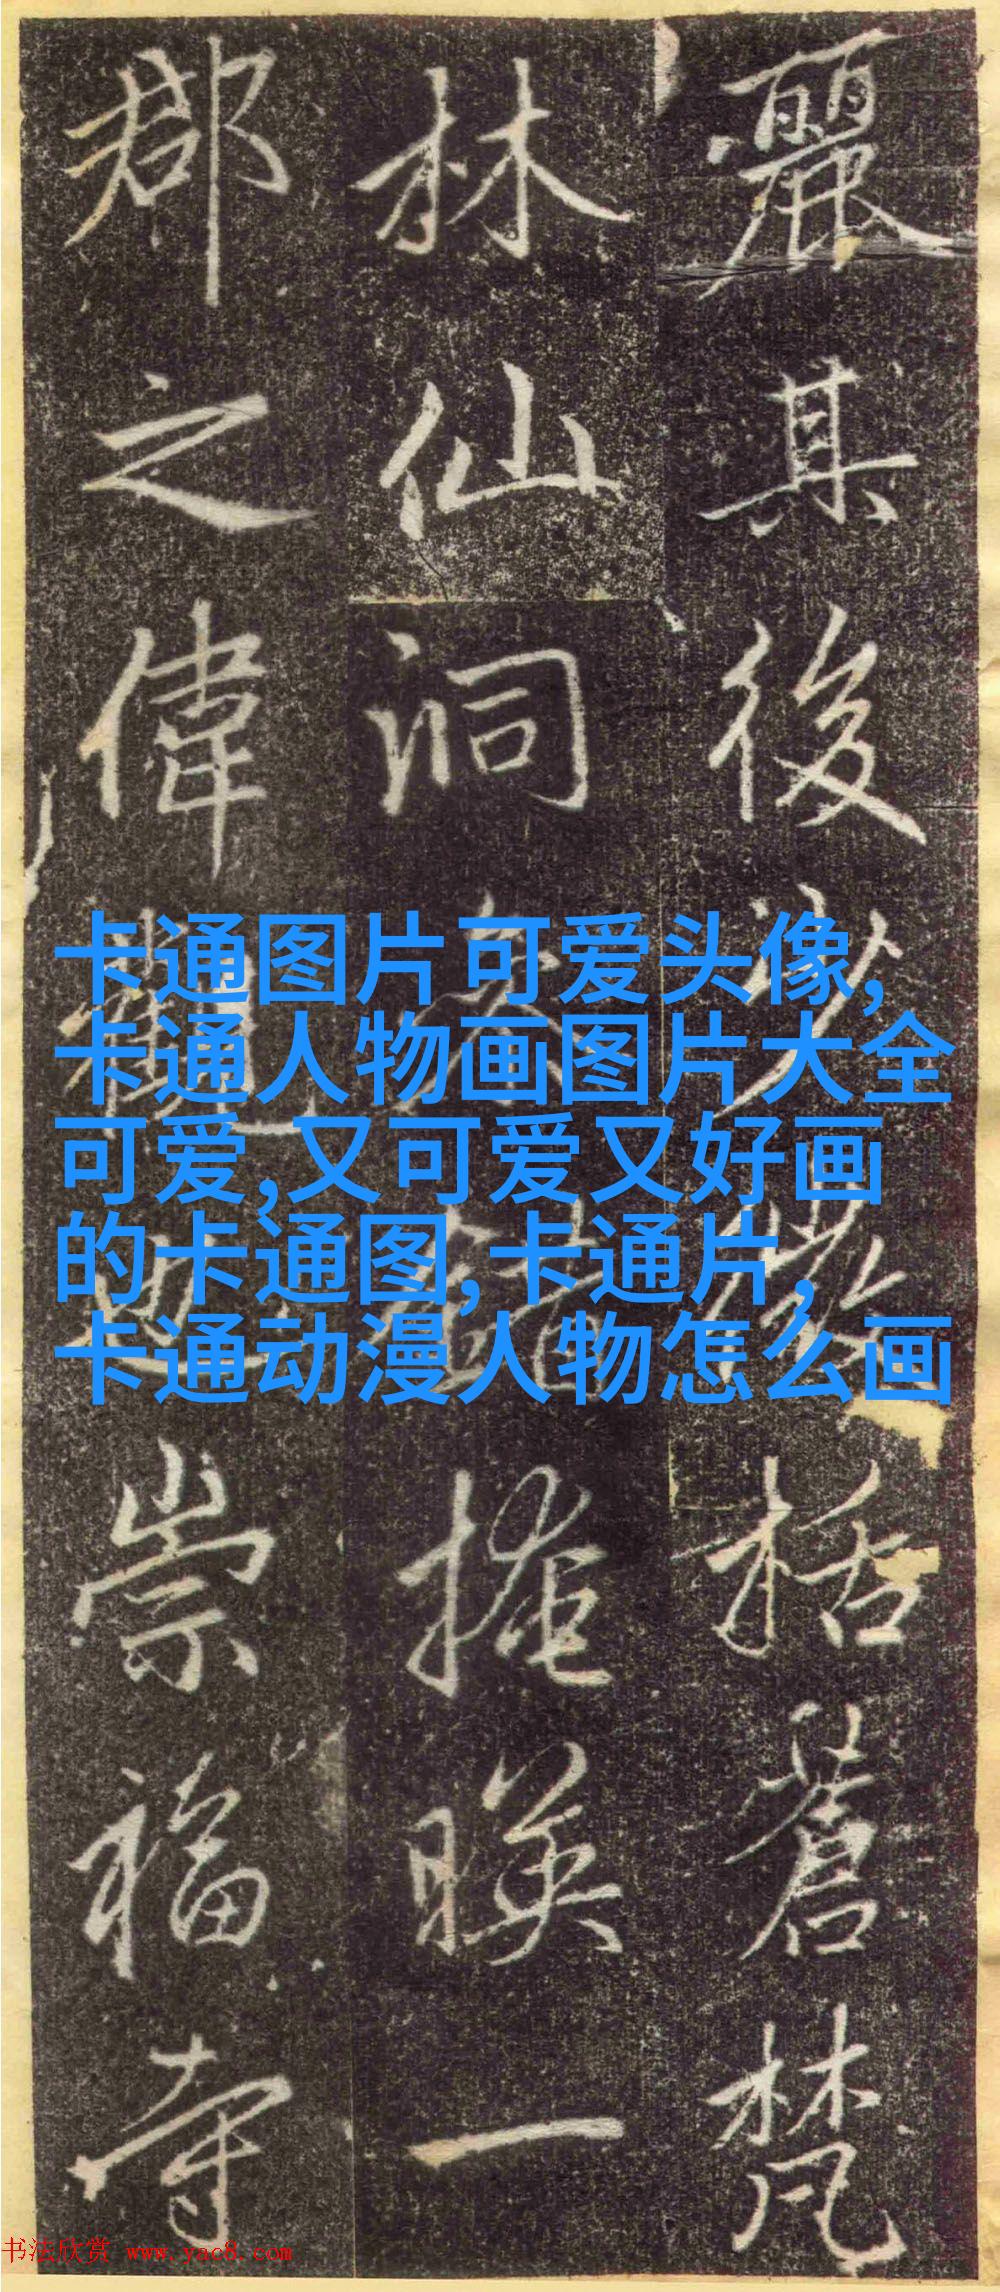 麗其後
括蒼梵
林仙洞
掩暎一
郡之偉觀
崇福寺
卡通图片可爱头像,
卡通人物画图片大全
可爱,又可爱又好画
的卡通图,卡通片,
卡通动漫人物怎么画
书法欣赏 www.yac8.com